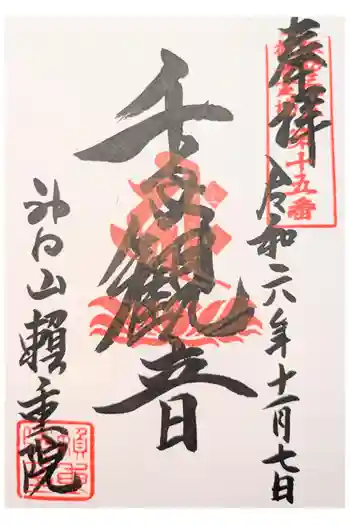 奉拝
第十五番
令和六年十一月七日
千手観音
神白山賴重院
賴重